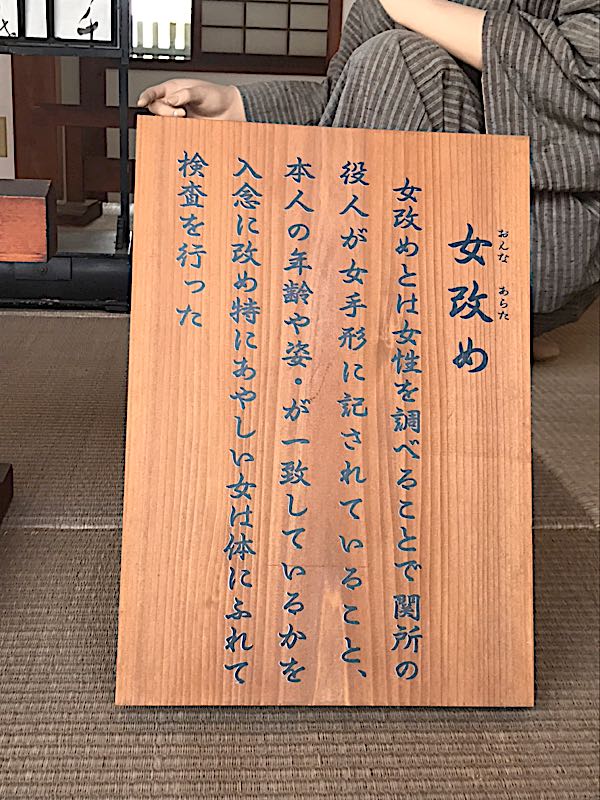 女改め
おんな あらた
女改めとは女性を調べることで関所の
役人が女手形に記されていること、
本人の年齢や姿・が一致しているかを
入念に改め特にあやしい女は体にふれて
検査を行った